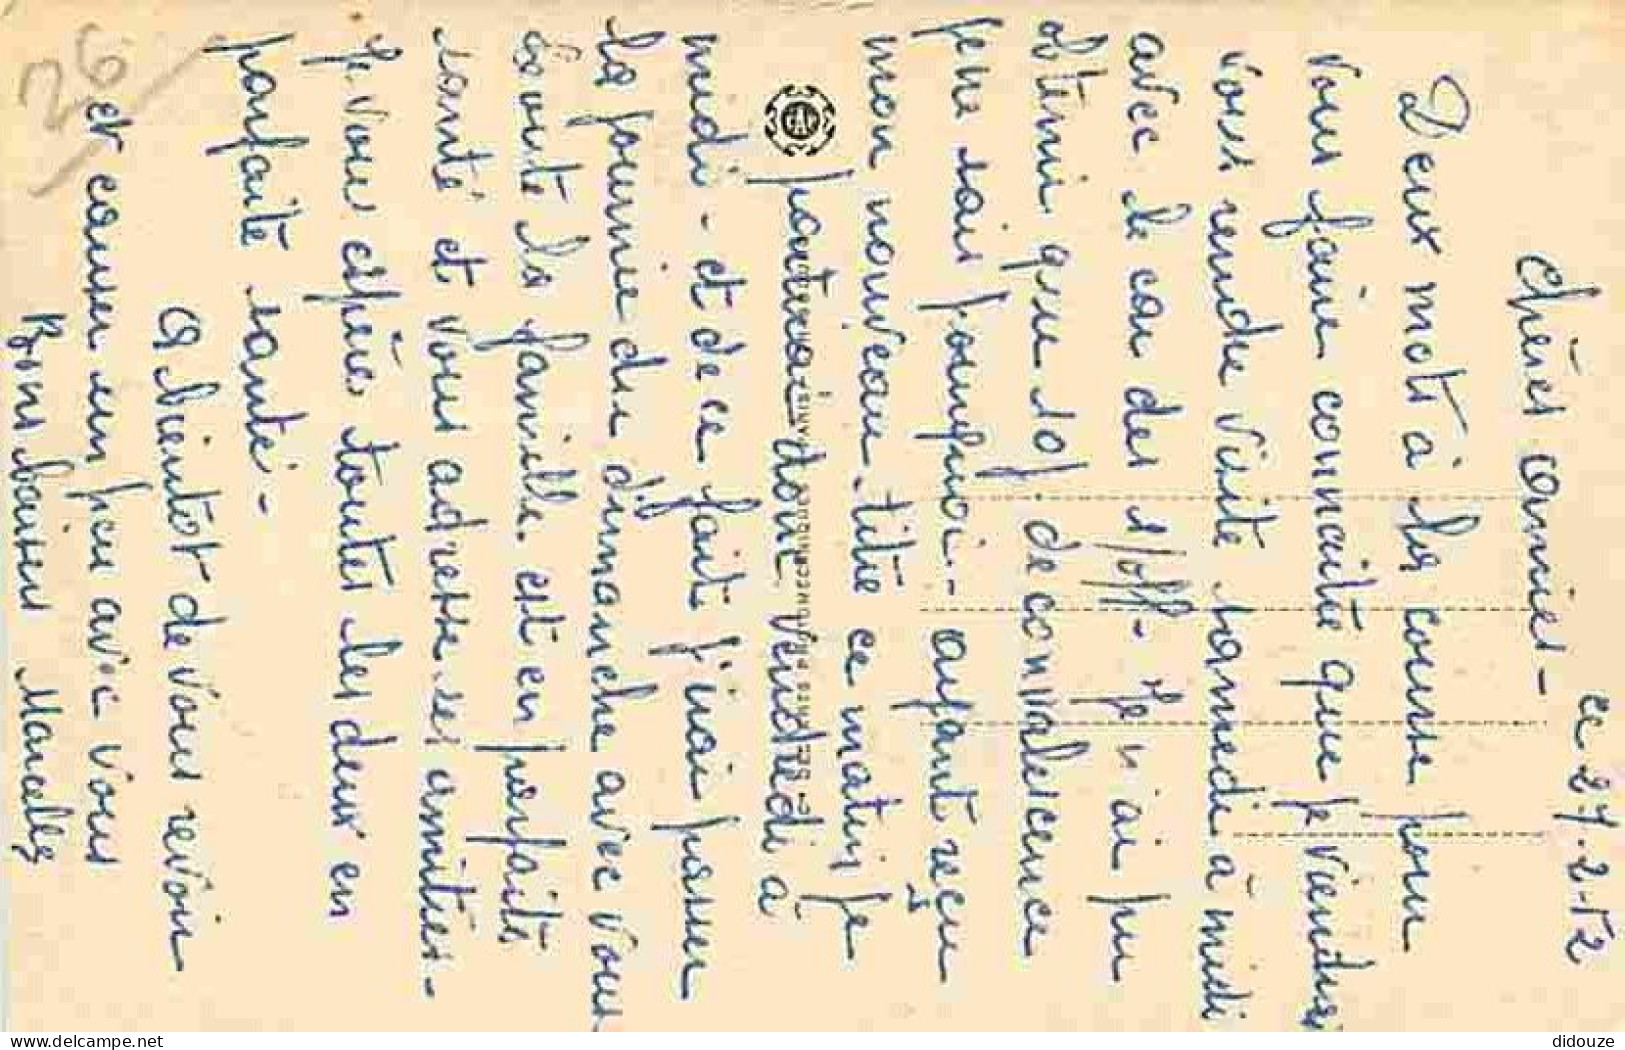 ce 27.2.52
Chères amies -
Deux mots à la course pour
vous faire connaitre que je viendrai
vous rendre visite samedi à midi
avec le car des 1/off - Je n'ai pu
obtenir que 10j. de convalescence
je ne sais pourquoi - ayant reçu
mon nouveau titre ce matin je
partirai donc vendredi à
midi - et de ce fait j'irai passer
la journée du dimanche avec vous
toute la famille est en parfaite
santé et vous adresse ses amitiés -
Je vous espère toutes les deux en
parfaite santé -
A bientôt de vous revoir
et causer un peu avec vous
Bons baisers Marcelle
26
delcampe.net
didouze